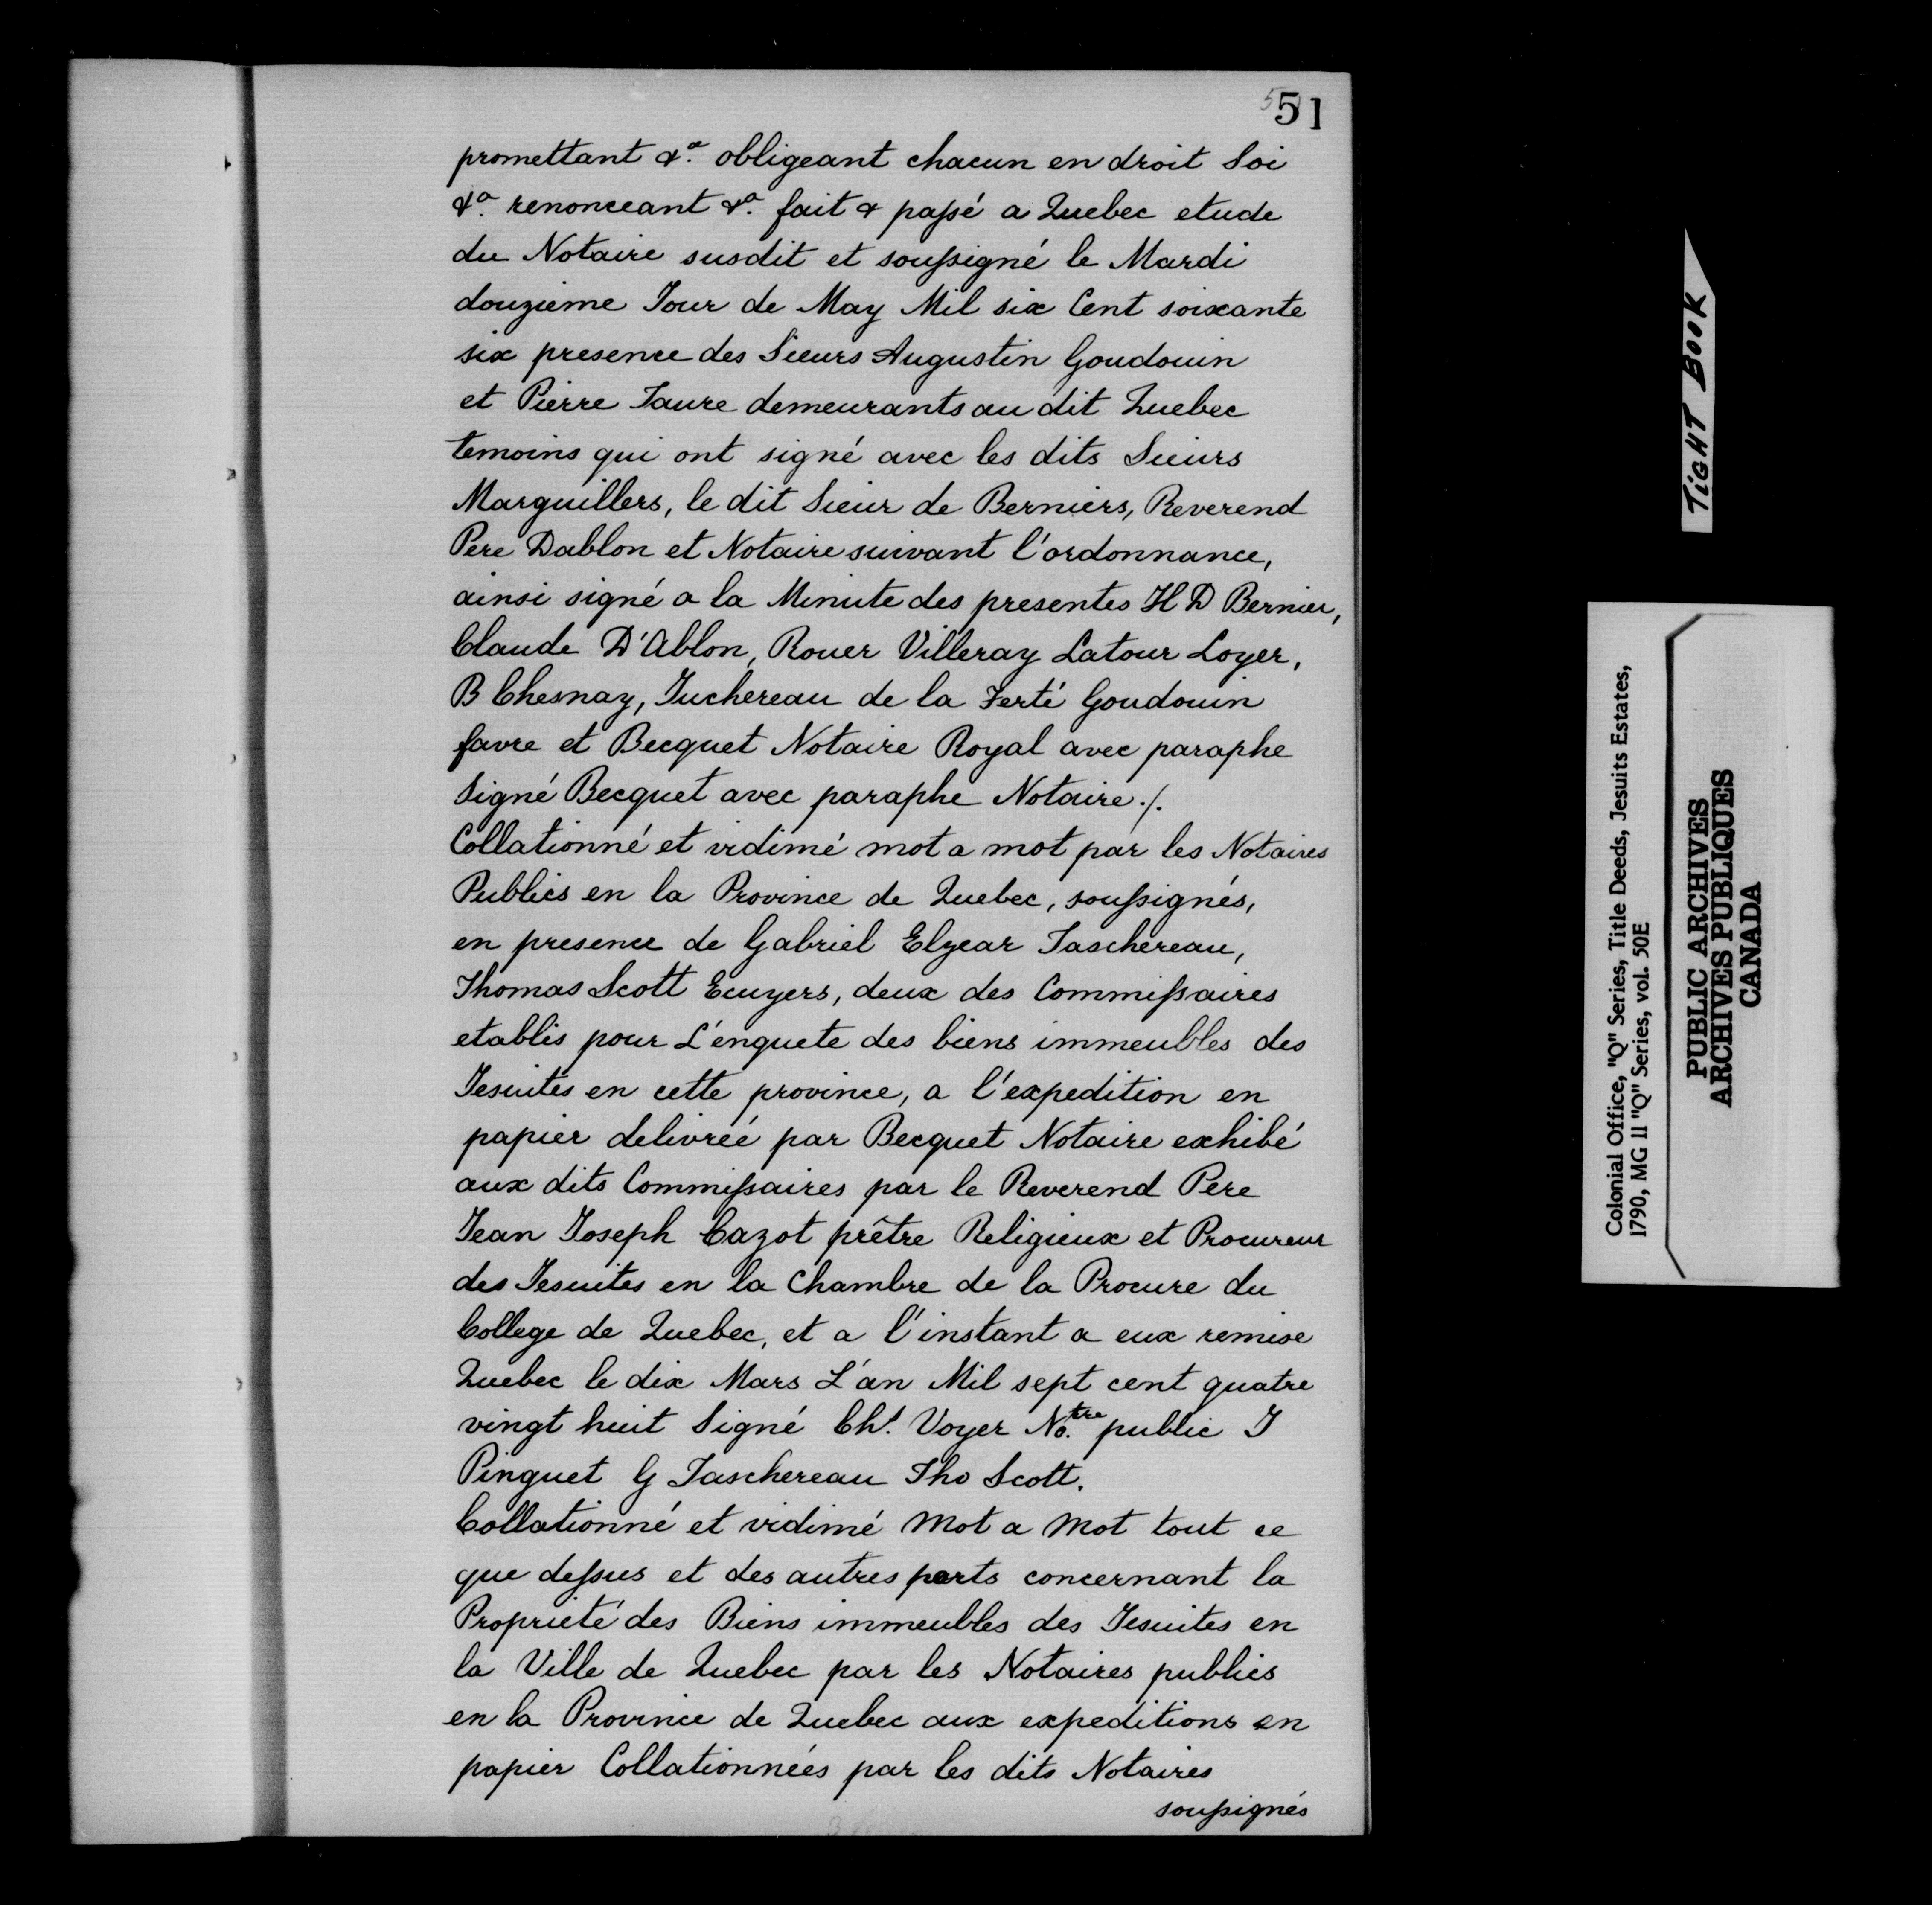 51
promettant &a. obligeant chacun en droit Soi
&a. renonceant &a. fait & passé a Quebec etude
du Notaire susdit et soussigné le Mardi
douzieme Jour de May Mil six Cent soixante
six presence des Sieurs Augustin Goudouin
et Pierre Faure demeurants au dit Quebec
temoins qui ont signé avec les dits Sieurs
Marguillers, le dit Sieur de Berniers, Reverend
Pere Dablon et Notaire suivant l'ordonnance,
ainsi signé a la Minute des presentes H D Bernier,
Claude D'Ablon, Rouer Villeray Latour Loyer,
B Chesnay, Juchereau de la Ferté Goudouin
favre et Becquet Notaire Royal avec paraphe
Signé Becquet avec paraphe Notaire ./.
Collationné et vidimé mot a mot par les Notaires
Publics en la Province de Quebec, soussignés,
en presence de Gabriel Elzear Taschereau,
Thomas Scott Ecuyers, deux des Commissaires
etablis pour L'enquete des biens immeubles des
Jesuites en cette province, a l'expedition en
papier delivréé par Becquet Notaire exhibé
aux dits Commissaires par le Reverend Pere
Jean Joseph Cazot prêtre Religieux et Procureur
des Jesuites en la Chambre de la Procure du
College de Quebec, et a l'instant a eux remise
Quebec le dix Mars L'an Mil sept cent quatre
vingt huit Signé Chs. Voyer No.tre public J
Pinguet G Taschereau Tho Scott.
Collationné et vidimé Mot a Mot tout ce
que dessus et des autres parts concernant la
Proprieté des Biens immeubles des Jesuites en
la Ville de Quebec par les Notaires publics
en la Province de Quebec aux expeditions en
papier Collationnées par les dits Notaires
soussignés
TIGHT BOOK
Colonial Office, "Q" Series, Title Deeds, Jesuits Estates,
1790, MG 11 "Q" Series, vol. 50E
PUBLIC ARCHIVES
ARCHIVES PUBLIQUES
CANADA